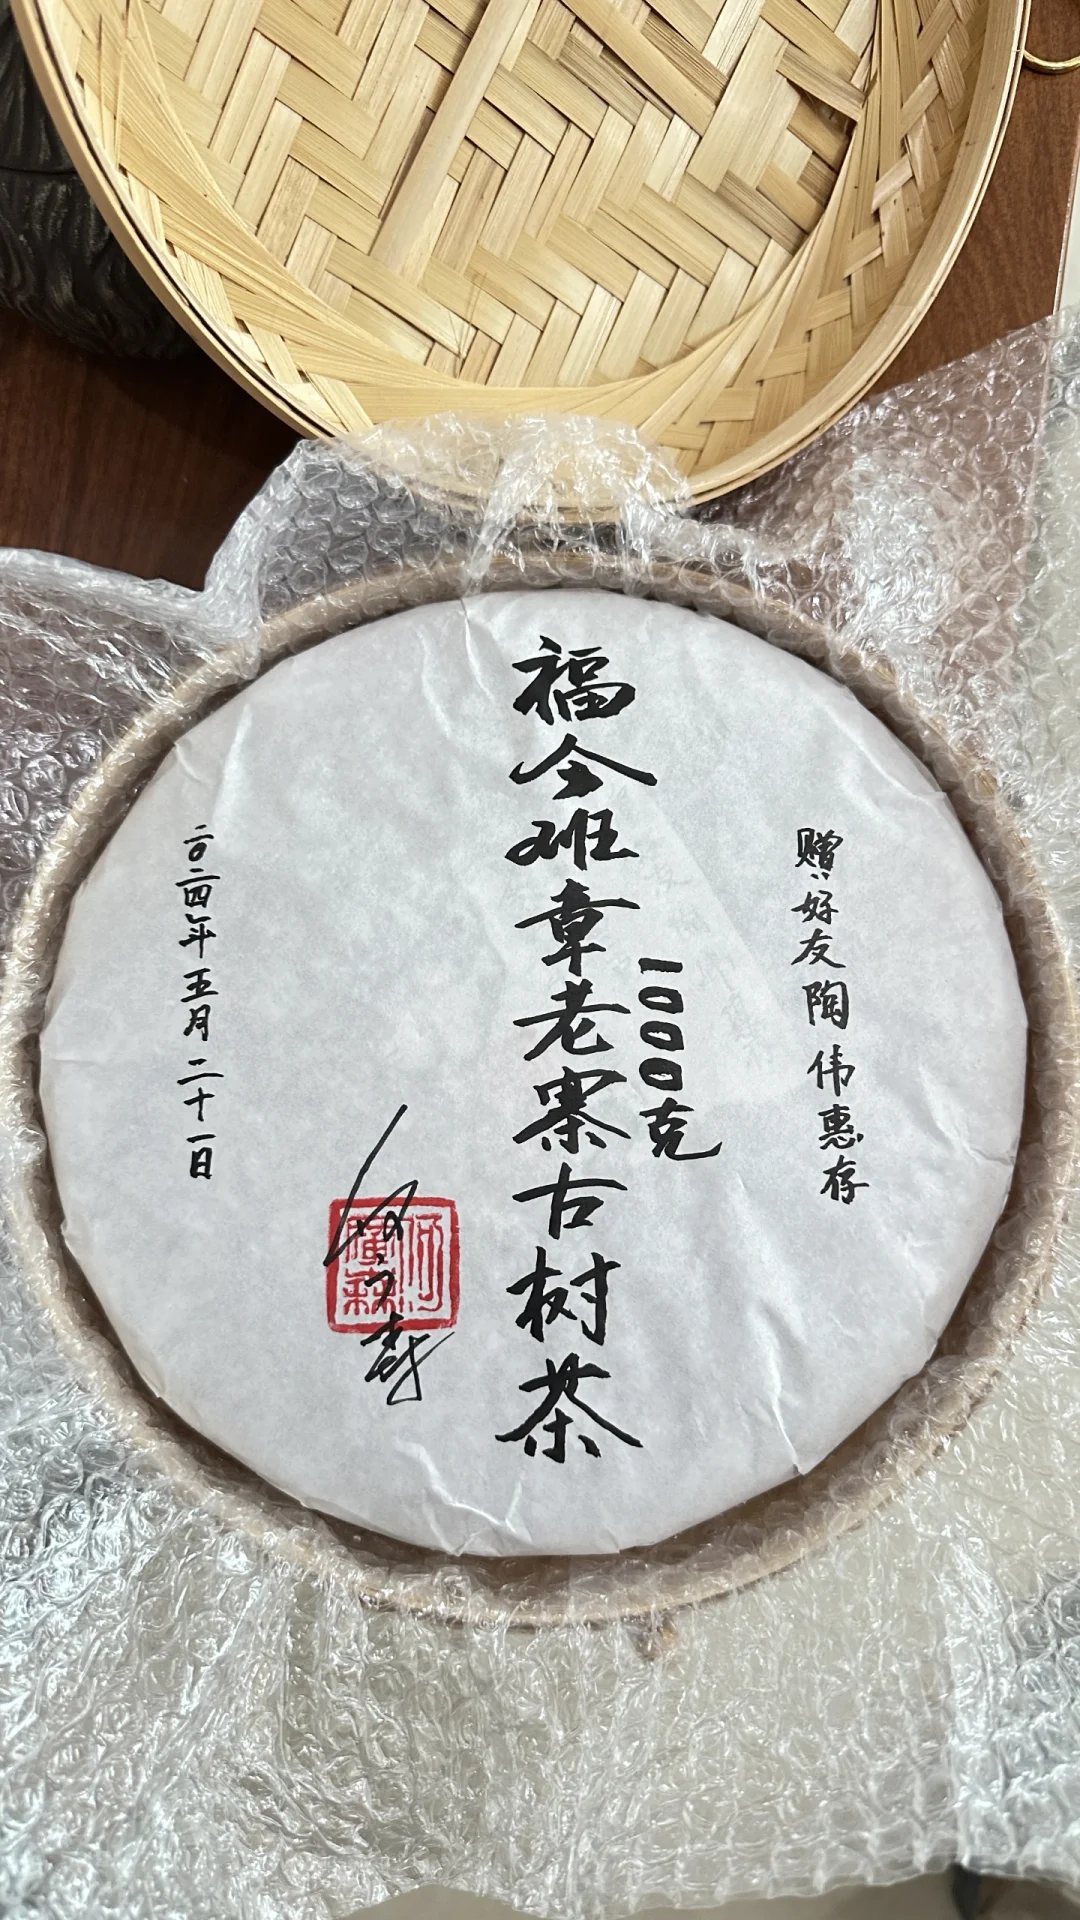 赠:好友陶伟惠存
福今班章老寨古树茶
1000克
二〇二四年五月二十一日